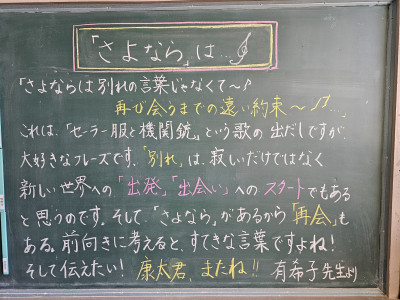 「さよなら」は…
「さよならは別れの言葉じゃなくて～♪
再び会うまでの遠い約束～♪…」
これは、「セーラー服と機関銃」という歌の出だしですが、
大好きなフレーズです。「別れ」は、寂しいだけではなく
新しい世界への「出発」「出会い」へのスタートでもある
と思うのです。そして、「さよなら」があるから「再会」も
ある。前向きに考えると、すてきな言葉ですよね！
そして伝えたい！康太君、またね!! 有希子先生より